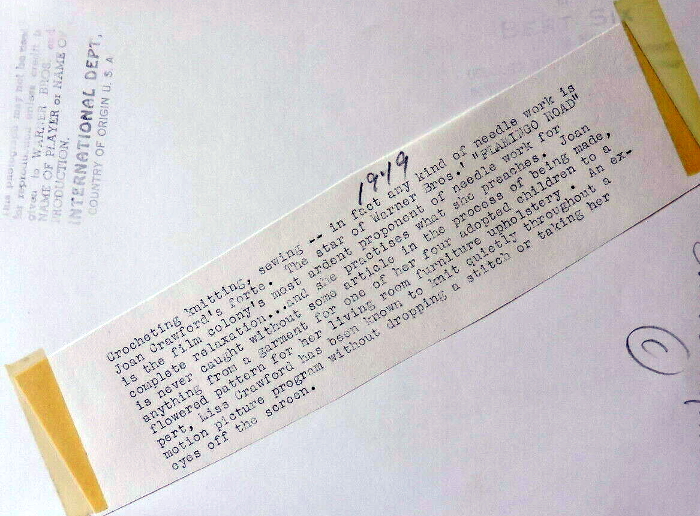 BERT SIX
this photograph may not be used
given to WARNER BROS. and
NAME OF PLAYER or NAME OF
PRODUCTION.
INTERNATIONAL DEPT.
COUNTRY OF ORIGIN U. S. A
1949
Crocheting knitting, sewing -- in fact any kind of needle work is
Joan Crawford's forte. The star of Warner Bros.' "FLAMINGO ROAD"
is the film colony's most ardent proponent of needle work for
complete relaxation...and she practises what she preaches. Joan
is never caught without some article in the process of being made,
anything from a garment for one of her four adopted children to a
flowered pattern for her living room furniture upholstery. An ex-
pert, Miss Crawford has been known to knit quietly throughout a
motion picture program without dropping a stitch or taking her
eyes off the screen.
©